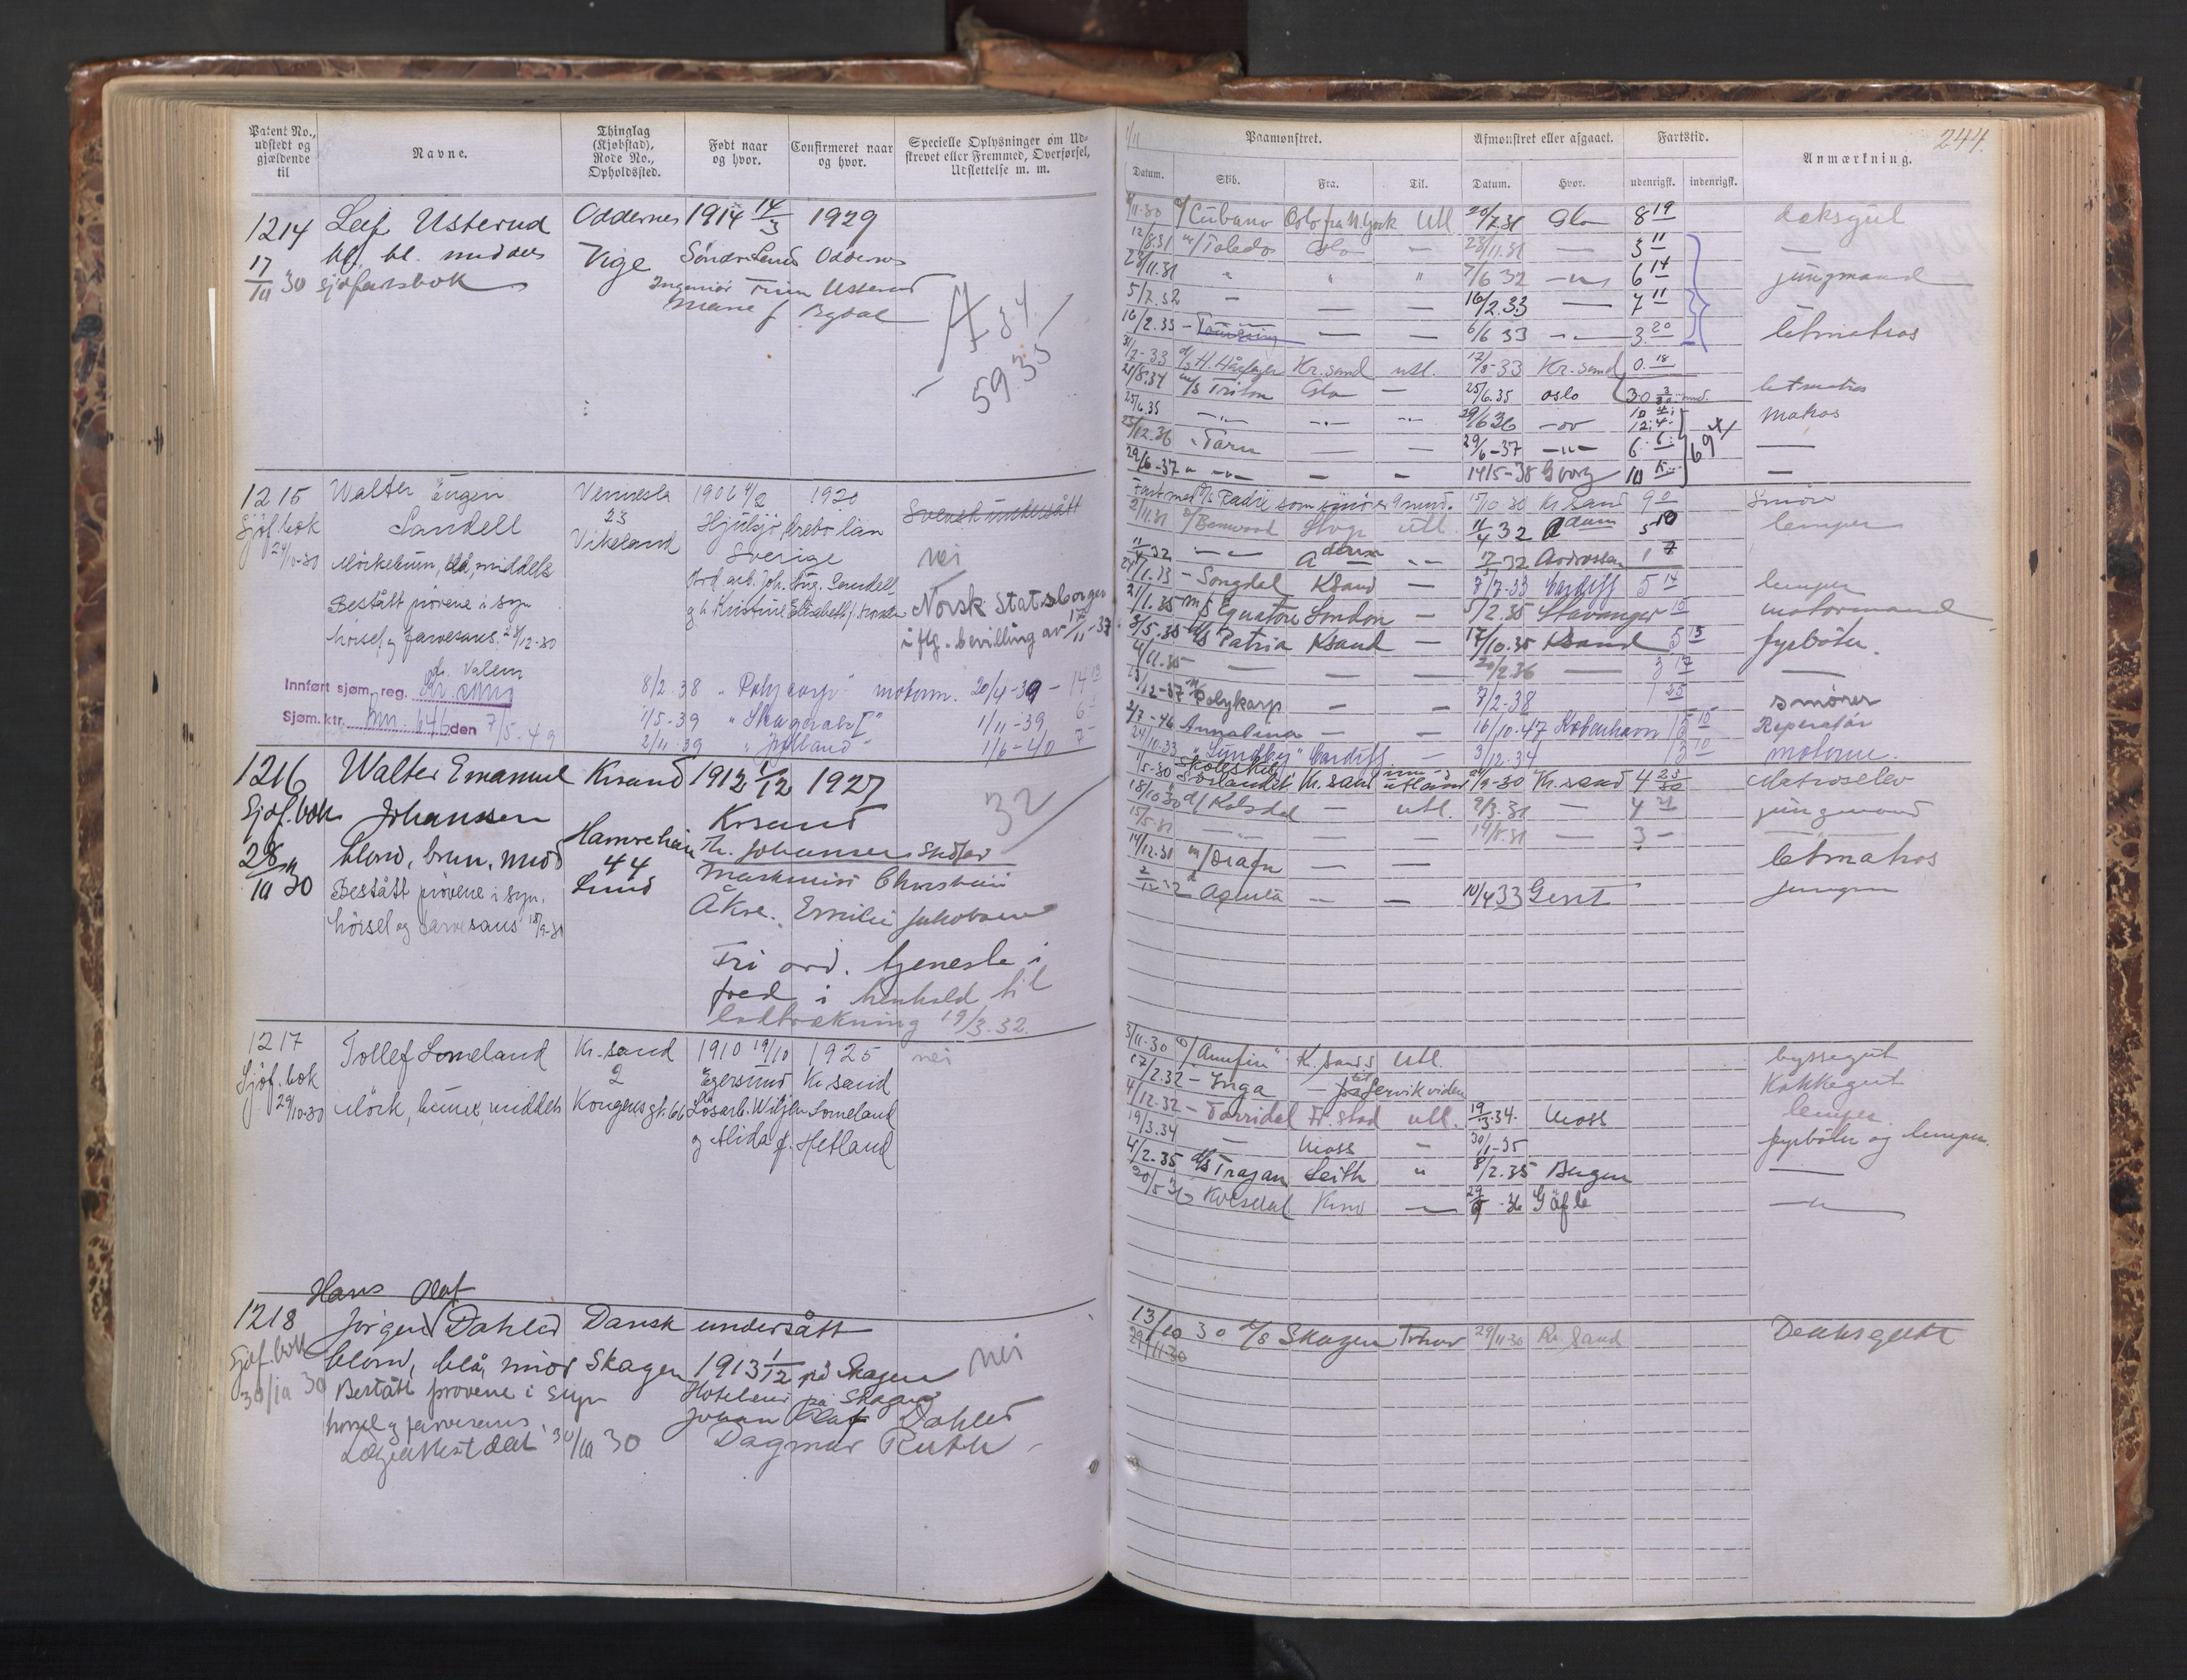 Patent No., udstedt og gjældende til
Navne.
Thinglag (Kjøbstad), Rode No., Opholdssted.
Født naar og hvor.
Confirmeret naar og hvor.
Specielle Oplysninger om Udstrevet eller Fremmed, Overførsel, Udslettelse m. m.
1214
17/11 30
Leif Usterud
bl. bl. middels
sjøfartsbok
Oddernes
Vige
1914 14/3 1929
Søndre Land Oddernes
Ingeniør Finn Usterud
Marie f. Bydal
A 34
59.35
1215
Sjøf.bok
24/10-30
Walter Eugen
Sandell
Mörkebrun, blå, middels
Bestått prøvene i syn
hørsel og farvesans. 23/12-30
Vennesla
23
Vikeland
1906 4/2 1920
Hjulsjö, Örebro län
Sverige
Jord.arb. Joh. Aug. Sandell
Svensk undersått
nei
Norsk Statsborger
iflg. bevilling av 17/11-33
Innført sjøm. reg. Kr.sand
Sjøm.ktr. mn. 646 den 7/5-49
8/2-38 " Polycarp" motorm. 20/4-39 - 14 13
1/5-39 " Skagerak I" 1/11-39 6 -
2/11-39 " Jylland - 1/6-40 7 -
1216
Sjøf.bok
28/10 30
Walter Emanuel
Johanssen
blond, brun, midd
Bestått prøvene i syn.
hørsel og farvesans 18/9-31
Krsand
Hamreheia
44
Lund
1912 1/12 1927
Krsand
Th. Johansen Skofør
Maskinist Christian
Åkre. Emilie Jakobsen
32
Fri ord. tjeneste i
fred i henhold til
lodtrekning 19/3.32.
1217
Sjøf.bok
29/10-30
Tollef Lomeland
Mörk, brune, middels
Kr.sand
2
Kongensgt. 66
1910 19/10 1925 nei
Egersund Kr.sand
Løsarb. Wilhelm Lomeland
og Alida f. Hetland
Hans Olaf
1218
Sjøf.bok
30/10 30
Jørgen Dahled Dansk undersått
blond, blå, midd Skagen 1913 1/12 på Skagen nei
Bestått prøvene i syn
hørsel og farvesans
Lægeattest dat 30/10 30
Hoteleier på Skagen
Johan Olaf Dahled
Dagmar Ruth
244.
Paamønstret.
Afmønstret eller afgaaet.
Fartstid.
Anmærkning.
Datum. Skib. Fra. Til. Datum. Hvor. udenrigsk. indenrigsk.
/11-30 Cubano Oslo fra N. York Utl. 20/7.31 Oslo 8 19 deksgut
12/8.31 Toledo Oslo — 23/11.31 — 3 11 —
23/11.31 " " " 7/6 32 — 6 14 jungmand
5/7.32 — — — 16/2.33 — 7 11
16/2.33 - — — 6/6 33 — 3 20 letmatros
31/7-33 H. Hårfager Kr.sand utl. 17/8-33 Kr.sand 0. 18
21/8.34 m/s Triton Oslo — 25/6.35 oslo letmatros
25/6.35 — — — 29/6 36 — Matros
23/12.36 - Tarn — — 29/6-37 — 6. 6 —
29/6-37 " — — — 14/5-38 Gborg 10 15 —
Fart med Radix som smører 9 mnd. 15/10.30 Kr.sand 9 0 Smører
2/11.31 Benwood utl 11/4 32 Adam 5 10 lemper
11/4 32 — Adam — 32 Ardrossan 1 7
1.33 - Songdal Ksand — 7/7-33 Cardiff 5 14 lemper
21/1.35 m/s Equator London — 5/2.35 Stavanger 15 motormand
3/5.35 Patria Ksand — 17/10.35 Ksand 5 15 fyrbøter.
4/11.35 — — 20/2.36 — 3 17 —
12-37 Polykarp — — 7/2-38 1 25 smører
2/7-46 Annalina — — 16/10.47 København 15 15 Reparatør
24/10.33 "Sundby" Cardiff. — 3/12.34 13 10 motorm.
1/5-30 Skoleskib Sørlandet Kr.sand utland /9-30 Kr.sand 4 23/30 Matroselev
18/10 30 d/ Kolsdal — utl. 9/3.31 — 4 21 jungmand
15/5-31 — — — 14/8.31 — 3 - —
14/12.31 m/ Drafn — — letmatros
2/12 32 Aquila — — 10/4 33 Gent jungm
3/11-30 "Annfin" K.sand Utl. byssegut
17/2.32 - Inga — Kokkegut
4/12.32 - Torridal Fr.stad utl. 19/3.34. Moss lemper
19/3.34 — Moss - 30/1-35 fyrbøter og lemper.
4/2.35 d/s Trajan Leith " 8/2.35 Bergen —
20/5 36 Kolsdal Krsd — 29/9-36 Gäfle —
13/10 30 d/s Skagen Trhor 29/11-30 Kr.sand Deksgutt
29/11-30